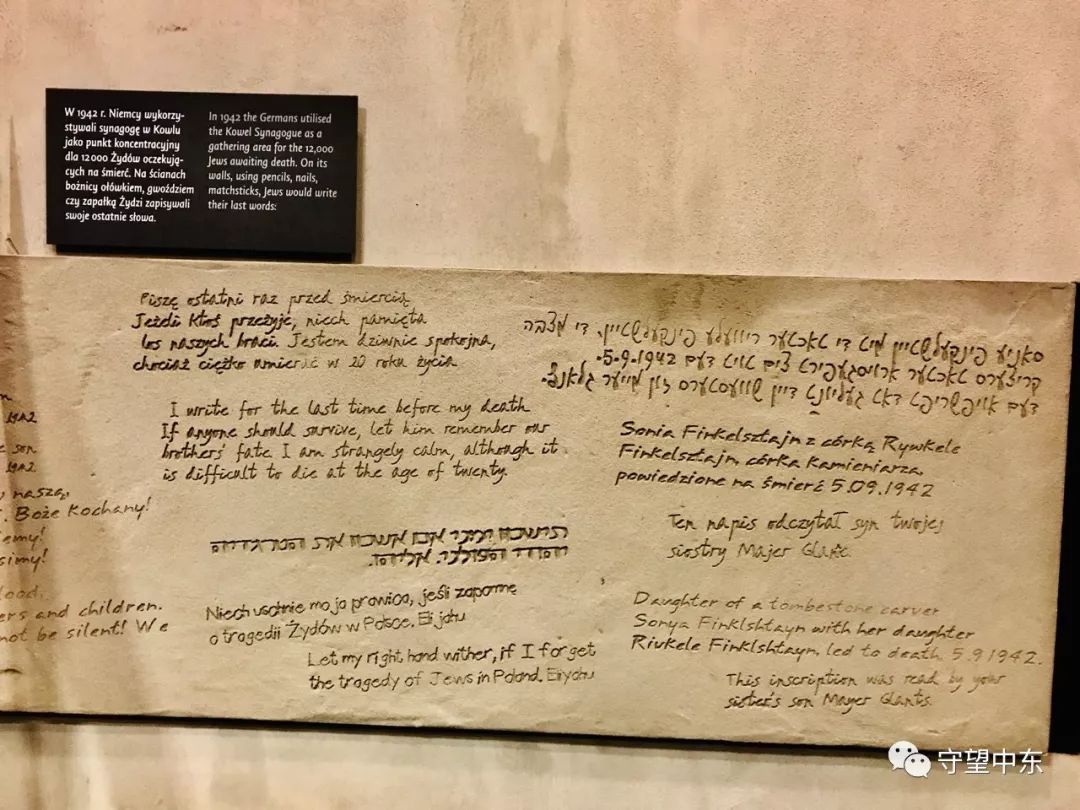 W 1942 r. Niemcy wykorzy-
stywali synagogę w Kowlu
jako punkt koncentracyjny
dla 12 000 Żydów oczekują-
cych na śmierć. Na ścianach
bożnicy ołówkiem, gwoździem
czy zapałką Żydzi zapisywali
swoje ostatnie słowa.
In 1942 the Germans utilised
the Kowel Synagogue as a
gathering area for the 12,000
Jews awaiting death. On its
walls, using pencils, nails,
matchsticks, Jews would write
their last words:
1942
son
1942
naszą,
Boże Kochany!
ers and children.
not be silent! We
Piszę ostatni raz przed śmiercią
Jeżeli ktoś przeżyje, niech pamięta
los naszych braci. Jestem dziwnie spokojna,
chociaż ciężko umierać w 20 roku życia
I write for the last time before my death
If anyone should survive, let him remember our
brothers' fate. I am strangely calm, although it
is difficult to die at the age of twenty.
תישכח ימיני אם אשכח את הטרגדיה
אליהו.
Niech uschnie moja prawica, jeśli zapomnę
o tragedii Żydów w Polsce. Elijahu
Let my right hand wither, if I forget
the tragedy of Jews in Poland. Eliyahu
סאניע פינקעלשטיין מיט די טאכטער ריוועלע פינקעלשטיין. די מצבה
קריצערס טאכטער ארויסגעפירט צום טויט דעם 5.9.1942.
דעם אויפשריפט דאט געליונט דיין שוועסטערס זון מייער גלאנץ.
Sonia Finkelsztajn z córką Rywkele
Finkelsztajn, córka kamieniarza,
powiedzione na śmierć 5.09.1942
Ten napis odczytał syn twojej
siostry Majer Glanc.
Daughter of a tombestone carver
Sonya Finklshtayn with her daughter
Rivkele Finklshtayn, led to death 5.9 1942.
This inscription was read by your
sister's son Mayer Glants.
守望中东